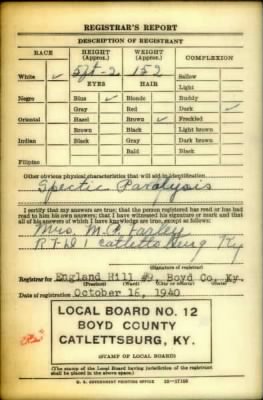 REGISTRAR'S REPORT
DESCRIPTION OF REGISTRANT
RACE HEIGHT (Approx.) WEIGHT (Approx.) COMPLEXION
White ✓ 5ft-2 152 Sallow
EYES HAIR Light
Negro Blue ✓ Blonde Ruddy
Gray Red Dark ✓
Oriental Hazel Brown ✓ Freckled
Brown Black Light brown
Indian Black Gray Dark brown
Bald Black
Filipino
Other obvious physical characteristics that will aid in identification
Spectic Paralysis
I certify that my answers are true; that the person registered has read or has had
read to him his own answers; that I have witnessed his signature or mark and that
all of his answers of which I have knowledge are true, except as follows:
Mrs. M. P. Farley
R.F.D 1 Catlettsburg Ky
(Signature of registrar)
Registrar for England Hill #9, Boyd Co, Ky.
(Precinct) (Ward) (City or county) (State)
Date of registration October 16, 1940
LOCAL BOARD NO. 12
BOYD COUNTY
CATLETTSBURG, KY.
(STAMP OF LOCAL BOARD)
(The stamp of the Local Board having jurisdiction of the registrant
shall be placed in the above space.)
U. S. GOVERNMENT PRINTING OFFICE